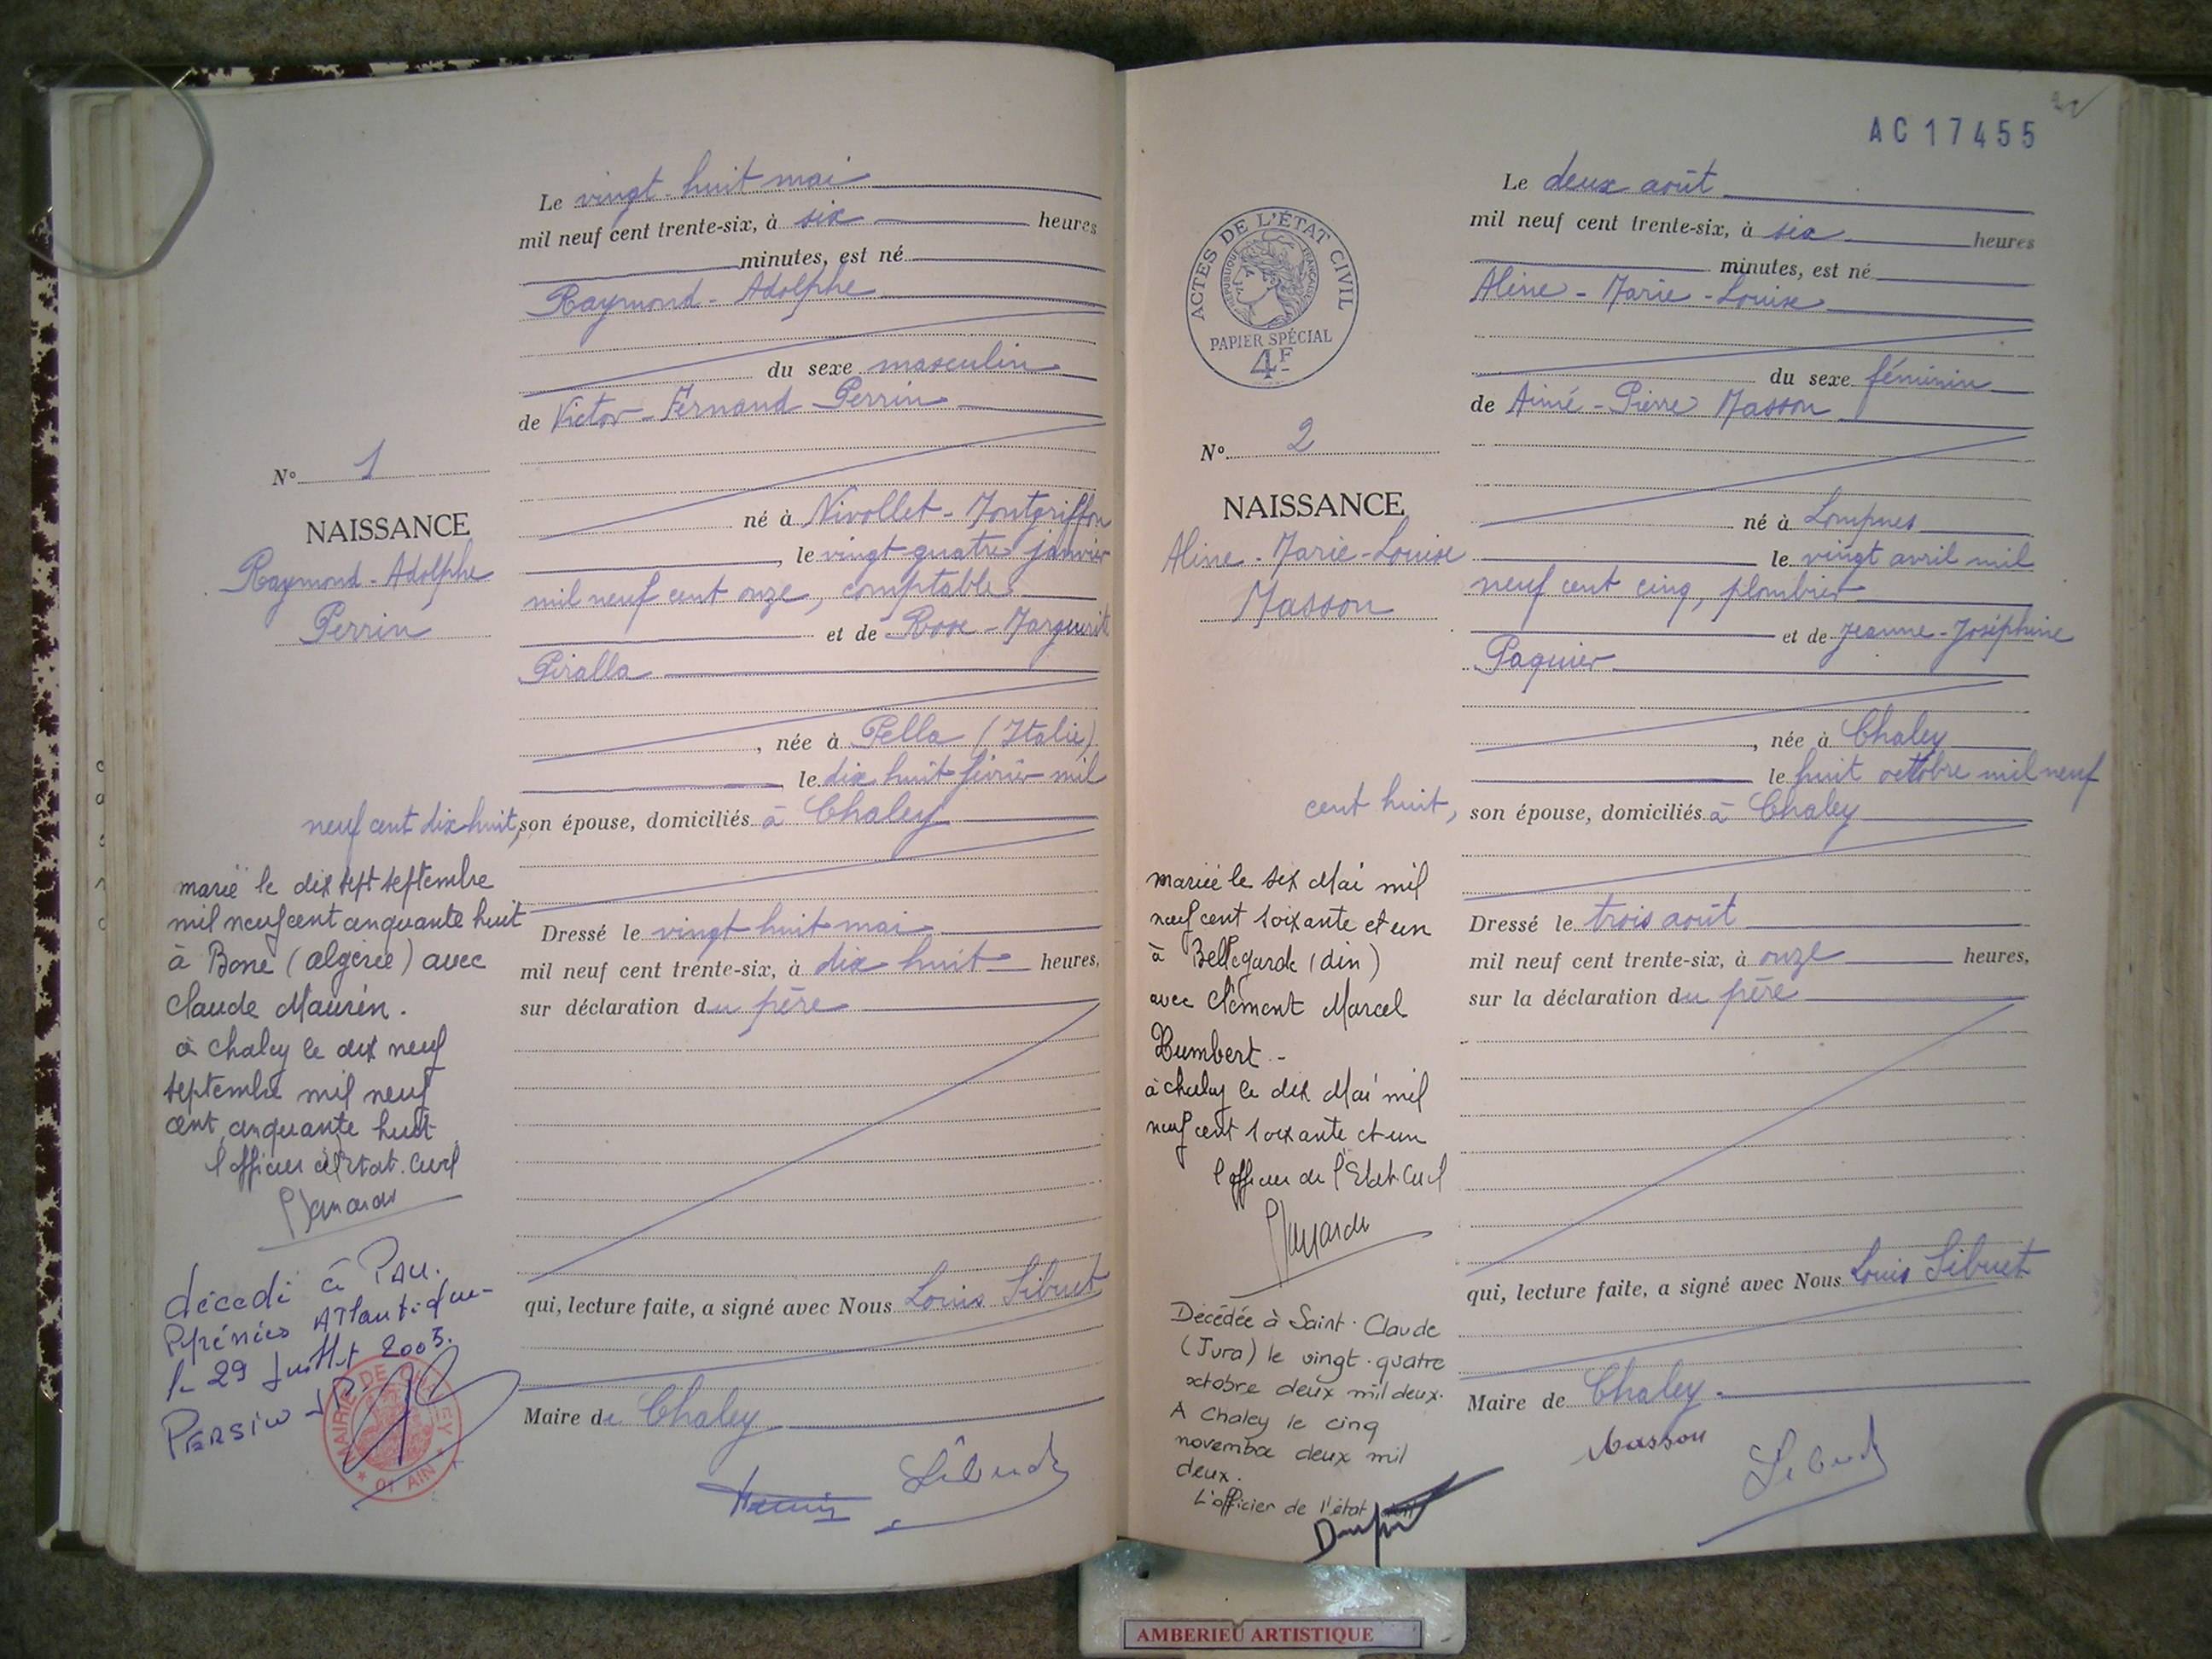 Le vingt-huit mai
mil neuf cent trente-six, à six heures
minutes, est né
Raymond-Adolphe
du sexe masculin
de Victor-Fernand Perrin
N° 1
NAISSANCE
Raymond-Adolphe
Perrin
né à Nivollet-Montgriffon
, le vingt-quatre janvier
mil neuf cent onze, comptable
et de Rose-Marguerite
Piralla
, née à Pella (Italie)
, le dix huit février mil
neuf cent dix huit, son épouse, domiciliés à Chaley
marié le dix sept septembre
mil neuf cent cinquante huit
à Bone (algérie) avec
Claude Maurin.
à chaley le dix neuf
septembre mil neuf
cent cinquante huit
l'officier de l'Etat-Civil
Dressé le vingt huit mai
mil neuf cent trente-six, à dix-huit heures,
sur déclaration du père
qui, lecture faite, a signé avec Nous Louis Sibuet
Maire de Chaley
décédé à PAU.
Pyrénées ATlantique-
le 29 Juillet 2005.
MAIRIE DE CHALEY
* 01 AIN *
Sibuet
AC17455
Le deux août
mil neuf cent trente-six, à six heures
minutes, est né
Aline-Marie-Louise
ACTES DE L'ÉTAT CIVIL
RÉPUBLIQUE FRANÇAISE
PAPIER SPÉCIAL
4F
du sexe féminin
de Aimé-Pierre Masson
N° 2
NAISSANCE
Aline-Marie-Louise
Masson
né à Lompnes
le vingt avril mil
neuf cent cinq, plombier
et de Jeanne-Joséphine
Paquier
, née à Chaley
le huit octobre mil neuf
cent huit, son épouse, domiciliés à Chaley
mariée le six Mai mil
neuf cent soixante et un
à Bellegarde (Ain)
avec Clément Marcel
Humbert-
à chaley le dix Mai mil
neuf cent soixante et un
l'officier de l'Etat Civil
Dressé le trois août
mil neuf cent trente-six, à onze heures,
sur la déclaration du père
qui, lecture faite, a signé avec Nous Louis Sibuet
Maire de Chaley.
Décédée à Saint-Claude
(Jura) le vingt-quatre
octobre deux mil deux.
A Chaley le cinq
novembre deux mil
deux.
L'officier de l'état civil
Masson
Sibuet
AMBERIEU ARTISTIQUE